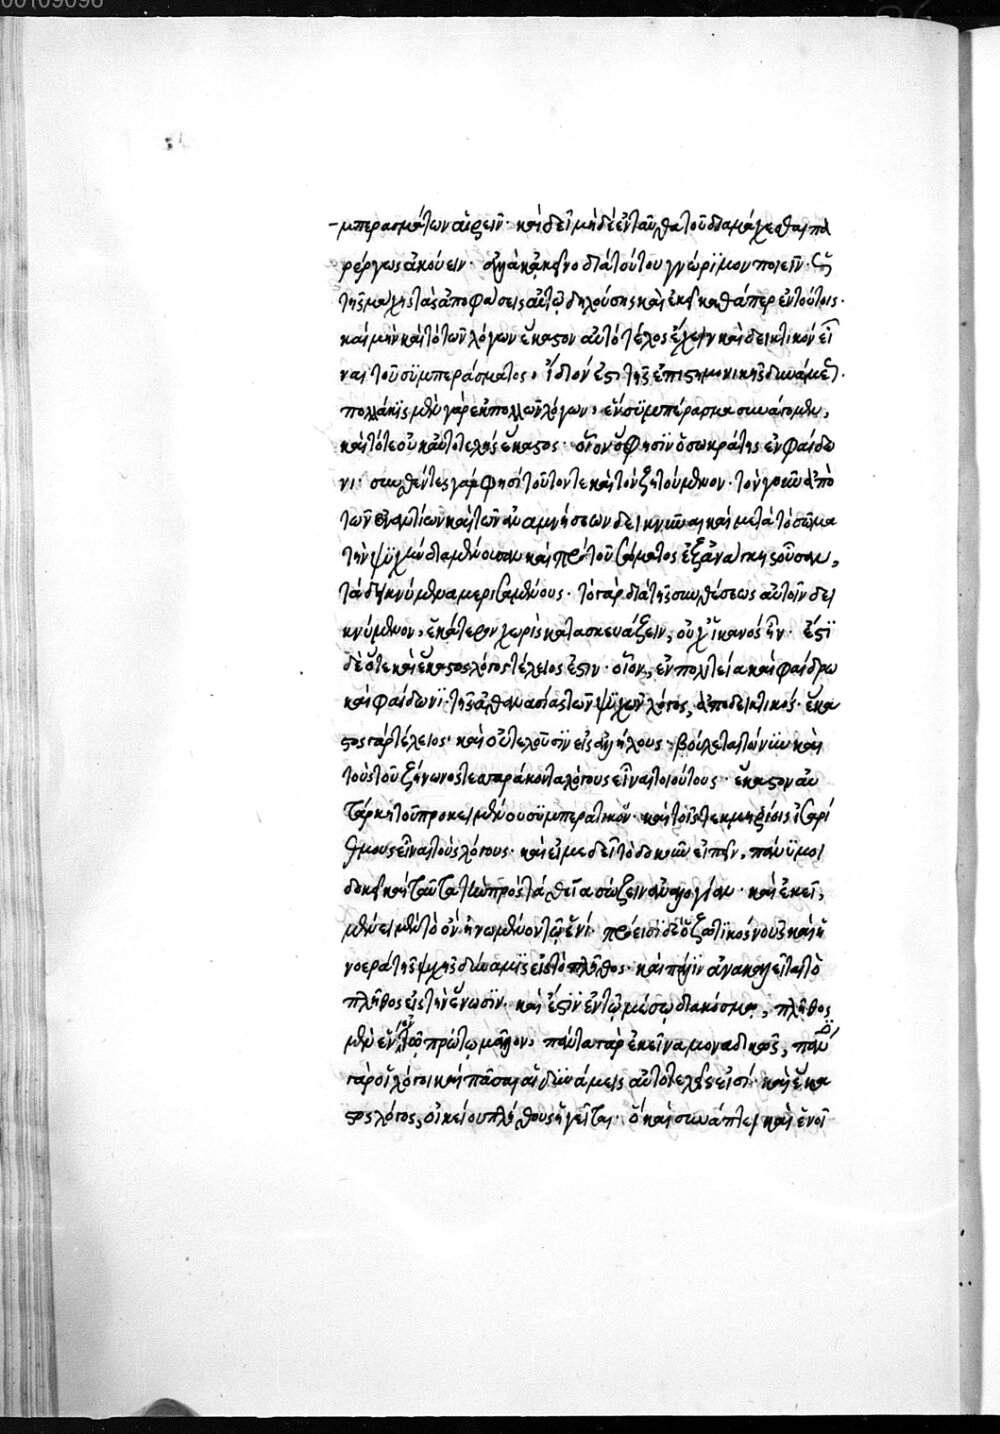 00109096
μπερασμάτων αἴρειν· καὶ δεῖ μηδὲ ἐνταῦθα τοῦ διαμάχεσθαι πα
ρέργως ἀκούειν· ἀλλὰ κἀκεῖνο διὰ τούτου γνώριμον ποιεῖν·
τῆς μάχης τὰς ἀποφάσεις αὐτῷ δηλούσης κἀκεῖ καθάπερ ἐν τούτοις·
καὶ μὴν καὶ τὸ τῶν λόγων ἕκαστον αὐτὸ τέλος ἔχειν καὶ δεικτικὸν εἶ
ναι τοῦ συμπεράσματος, ἴδιόν ἐστι τῆς ἐπιστημονικῆς δυνάμεως·
πολλάκις μὲν γὰρ ἐκ πολλῶν λόγων, ἓν συμπέρασμα συνάγομεν,
καὶ τότε οὐκ αὐτοτελὴς ἕκαστος· οἷον ὅ φησιν ὁ σωκράτης ἐν φαίδω
νι· συνθέντες γάρ φησι τοῦτόν τε καὶ τὸν ζητούμενον· τὸν γοῦν ἀπὸ
τῶν ἐναντίων καὶ τῶν ἀναμνήσεων δεικνῦναι καὶ μετὰ τὸ σῶμα
τὴν ψυχὴν διαμένουσαν καὶ πρὸ τοῦ σώματος ἐξ ἀνάγκης οὖσαν,
τὰ δεικνύμενα μερισαμένους· τὸ γὰρ διὰ τῆς συνθέσεως αὐτοῖν δει
κνύμενον, ἑκάτερον χωρὶς κατασκευάζειν, οὐχ ἱκανὸς ἦν· ἔστι
δὲ ὅτε καὶ ἕκαστος λόγος τέλειός ἐστιν· οἷον, ἐν πολιτείᾳ καὶ φαίδρῳ
καὶ φαίδωνι· τῆς ἀθανασίας τῶν ψυχῶν λόγος, ἀποδεικτικός· ἕκα
στος γὰρ τέλειος· καὶ οὐ τελοῦσιν εἰς ἀλλήλους· βούλεται τοίνυν καὶ
τοὺς τοῦ ζήνωνος τεσσαράκοντα λόγους εἶναι τοιούτους· ἕκαστον αὐ
τάρκη τοῦ προκειμένου συμπεραντικόν· καὶ τοῖς τεκμηρίοις ἰσαρί
θμους εἶναι τοὺς λόγους· καὶ εἴ με δεῖ τὸ δοκοῦν εἰπεῖν, πάνυ μοι
δοκεῖ καὶ ταῦτα τὴν πρὸς τὰ θεῖα σώζειν ἀναλογίαν· καὶ ἐκεῖ,
μένει μὲν τὸ ὂν ἡνωμένον τῷ ἑνί· πρόεισι δὲ ὁ ζωτικὸς νοῦς καὶ ἡ
νοερὰ τῆς ψυχῆς δύναμις εἰς τὸ πλῆθος· καὶ πάλιν ἀνακαλεῖται τὸ
πλῆθος εἰς τὴν ἕνωσιν· καὶ ἔστιν ἐν τῷ μέσῳ διακόσμῳ, πλῆθος
μὲν ἐν τῷ πρώτῳ μᾶλλον, πάντα γὰρ ἐκεῖνα μοναδικῶς,
γὰρ οἱ λόγοι καὶ πᾶσαι αἱ δυνάμεις αὐτοτελεῖς εἰσί· καὶ ἕκα
στος λόγος, οἰκείου πλήθους ἡγεῖται· ὃ καὶ συνάπτει καὶ ἑνοῖ